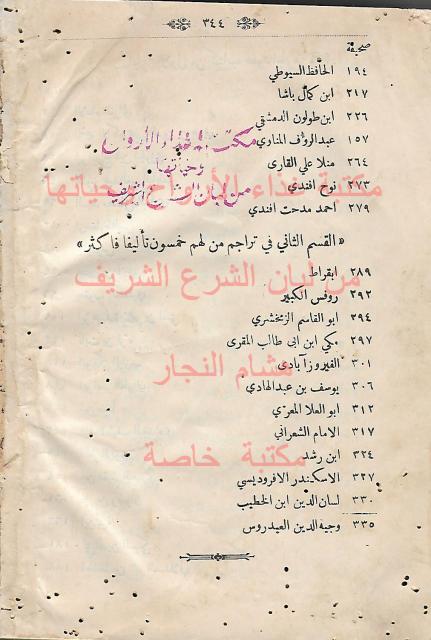 ٣٤٤
صحيفة
١٩٤ الحافظ السيوطي
٢١٧ ابن كمال باشا
٢٢٦ ابن طولون الدمشقي
١٥٧ عبدالرؤف المناوي
٢٦٤ منلا علي القارى
٢٧٣ نوح افندي
٢٧٩ احمد مدحت افندي
مكتبة غذاء الأرواح وحياتها
« القسم الثاني في تراجم من لهم خمسون تأليفا فاكثر »
٢٨٩ ابقراط
من لبان الشرع الشريف
٢٩٢ روفس الكبير
٢٩٤ ابو القاسم الزمخشري
٢٩٧ مكي ابن ابى طالب المقرى
٣٠١ الفيروزآبادى
هشام النجار
٣٠٦ يوسف بن عبدالهادي
٣١٢ ابو العلا المعري
٣١٧ الامام الشعراني
٣٢٤ ابن رشد
مكتبة خاصة
٣٢٧ الاسكندر الافروديسي
٣٣٠ لسان الدين ابن الخطيب
٣٣٥ وجيه الدين العيدروس